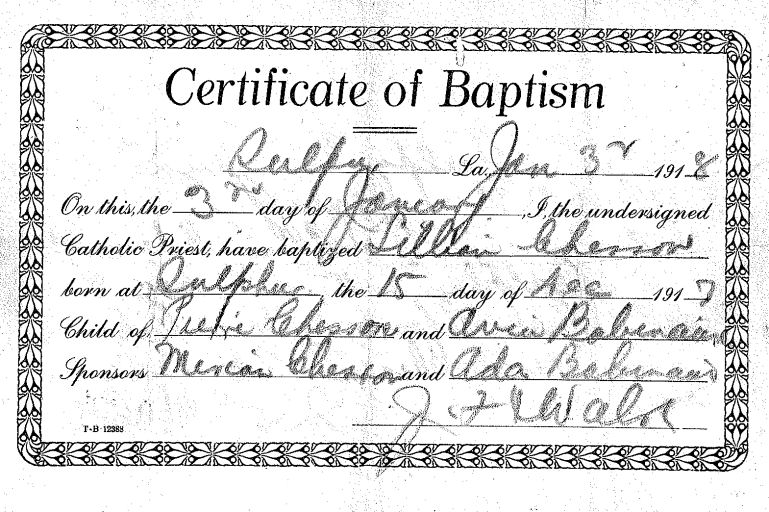 Certificate of Baptism
Sulphur, La, Jan 3rd 1918
On this, the 3rd day of January, I, the undersigned
Catholic Priest, have baptized Lillian Chesson
born at Sulphur, the 15 day of Dec 1917
Child of Pierre Chesson and Babineaux
Sponsors Chesson and Ada Babineaux
J. F. Walsh
F-B 12388